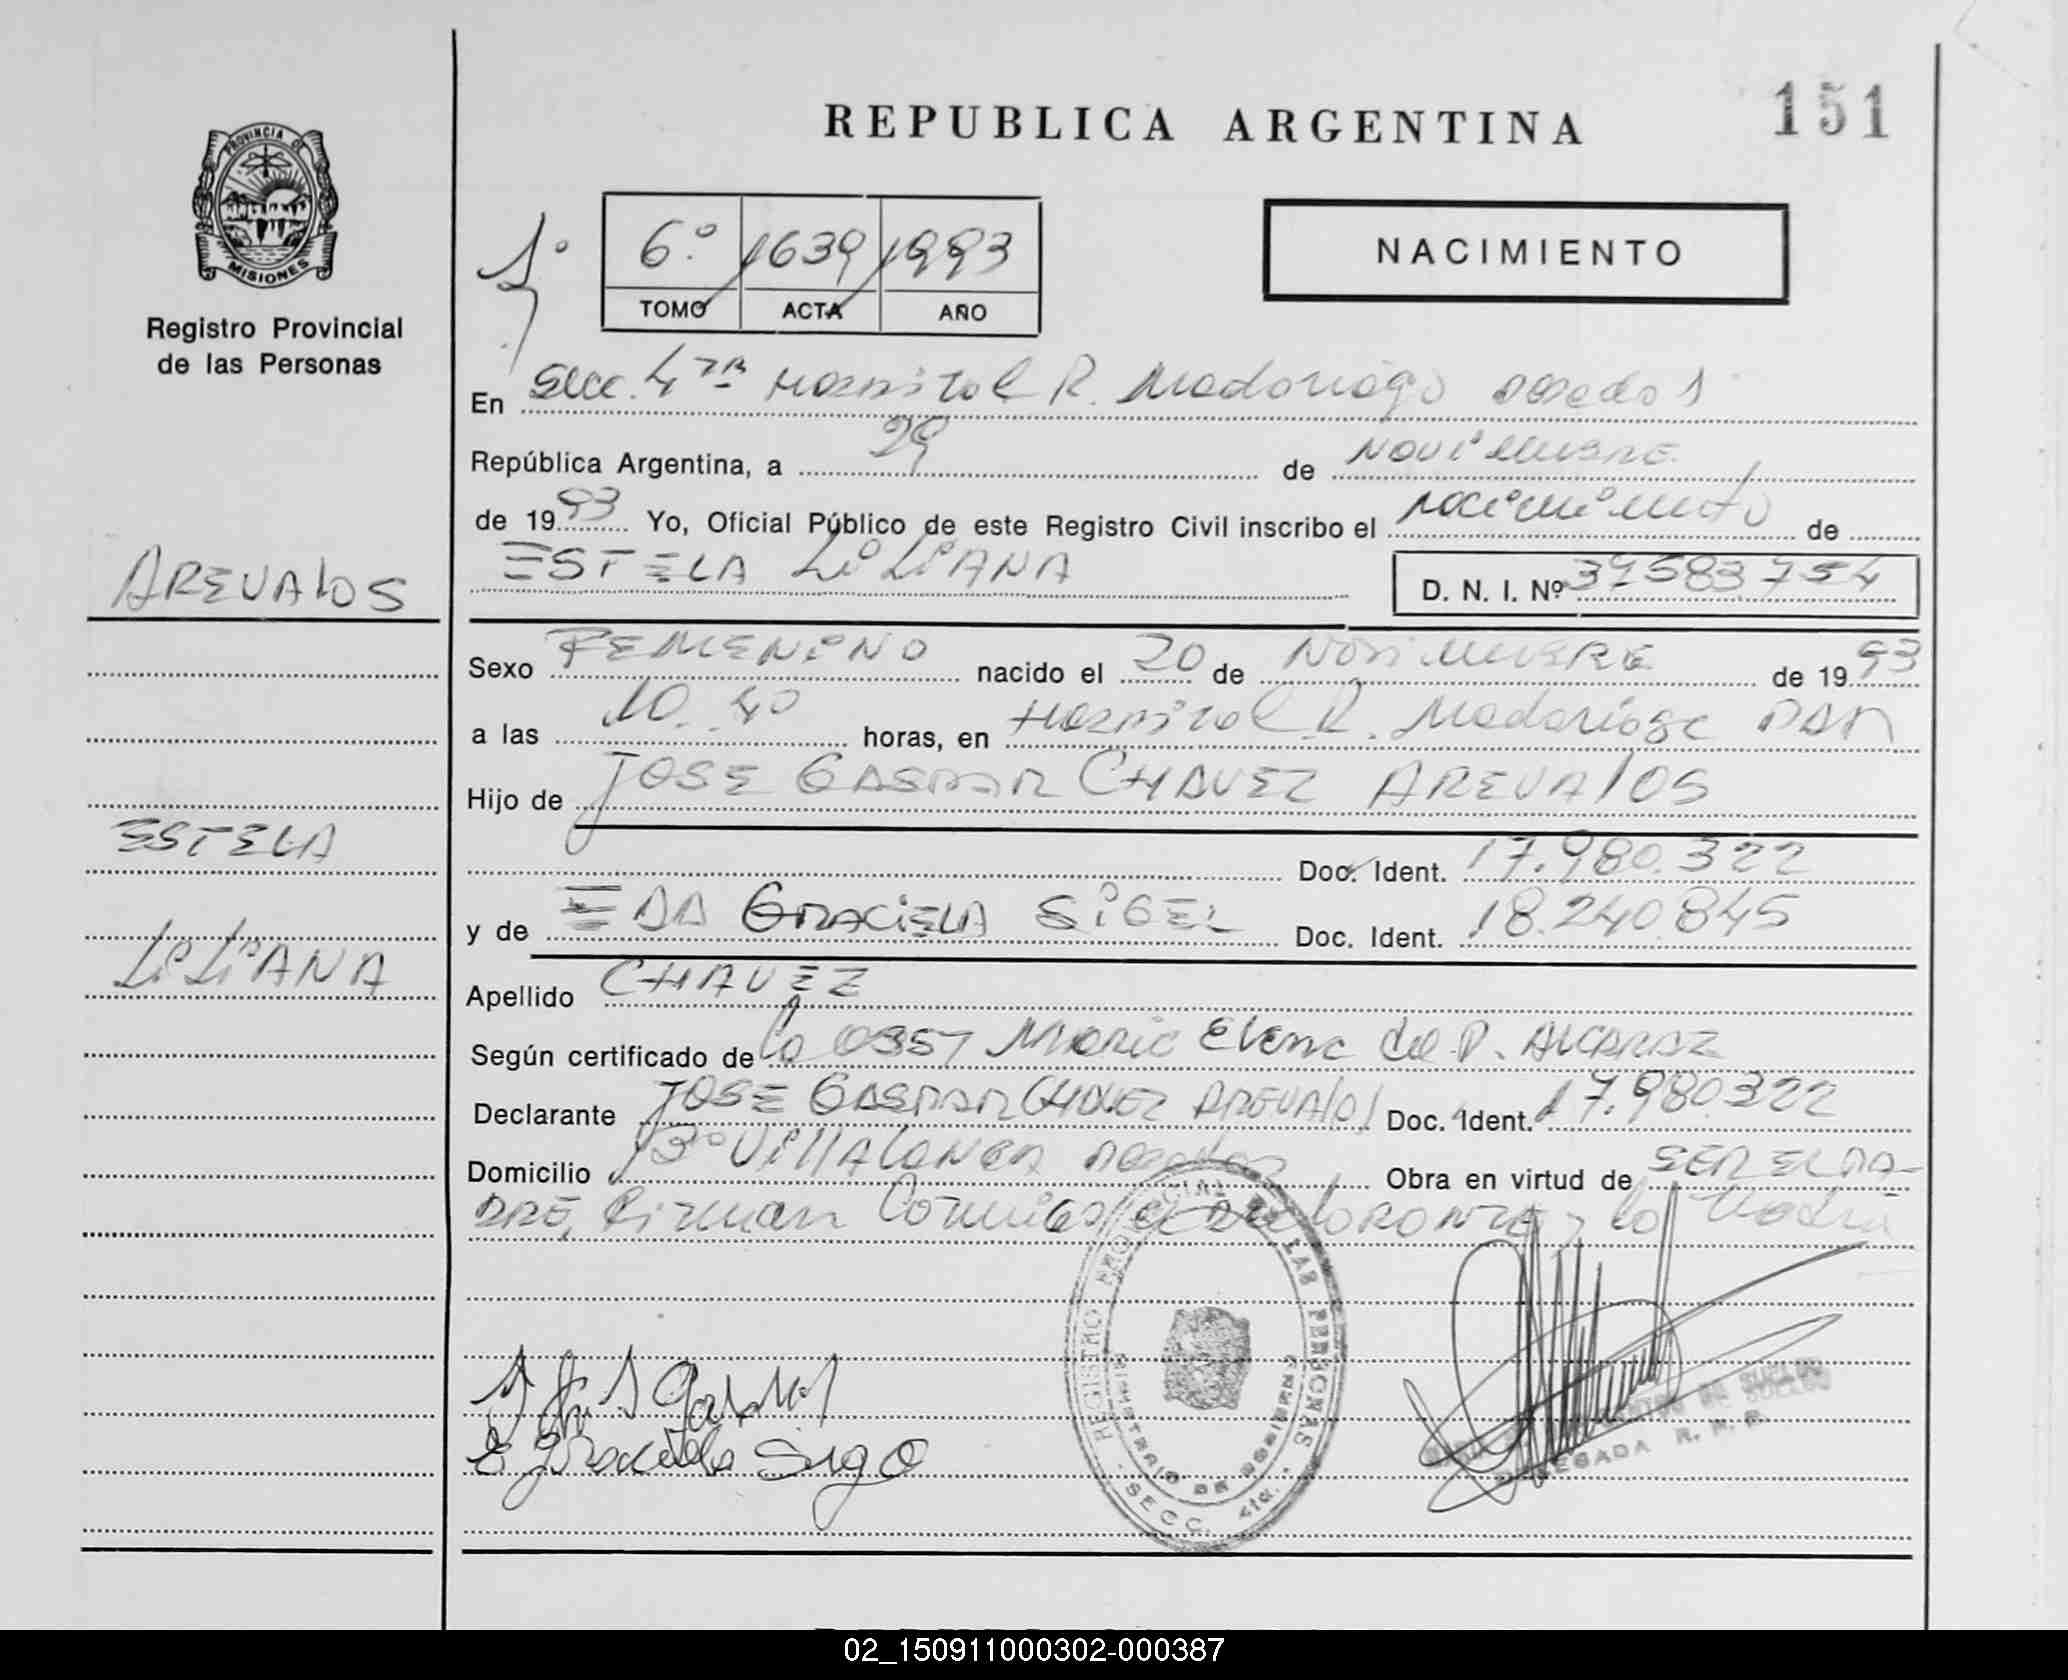 REPUBLICA ARGENTINA
151
PROVINCIA DE
MISIONES
Registro Provincial
de las Personas
1º
6º 1639 1993
TOMO ACTA AÑO
NACIMIENTO
En Secc. 4ta Hospital R. Madariaga Posadas
República Argentina, a 29 de NOVIEMBRE
de 1993 Yo, Oficial Público de este Registro Civil inscribo el nacimiento de
ESTELA LILIANA
D. N. I. Nº 37583754
AREVALOS
Sexo FEMENINO nacido el 20 de NOVIEMBRE de 1993
a las 10.40 horas, en Hospital R. Madariaga
Hijo de JOSE GASPAR CHAVEZ AREVALOS
ESTELA
Doc. Ident. 17.980.322
y de EDA GRACIELA SIGEL Doc. Ident. 18.240.845
LILIANA
Apellido CHAVEZ
Según certificado de la Maria Elena de P. ALCARAZ
Declarante JOSE GASPAR CHAVEZ AREVALOS Doc. Ident. 17.980.322
Domicilio Bº VILLALONGA Posadas Obra en virtud de SER EL PA-
DRE, Firman Conmigo el DECLARANTE y la Madre
REGISTRO PROVINCIAL DE LAS PERSONAS
MINISTERIO DE GOBIERNO
SECC. 4ta.
DELEGADA R. P. P.
02_150911000302-000387